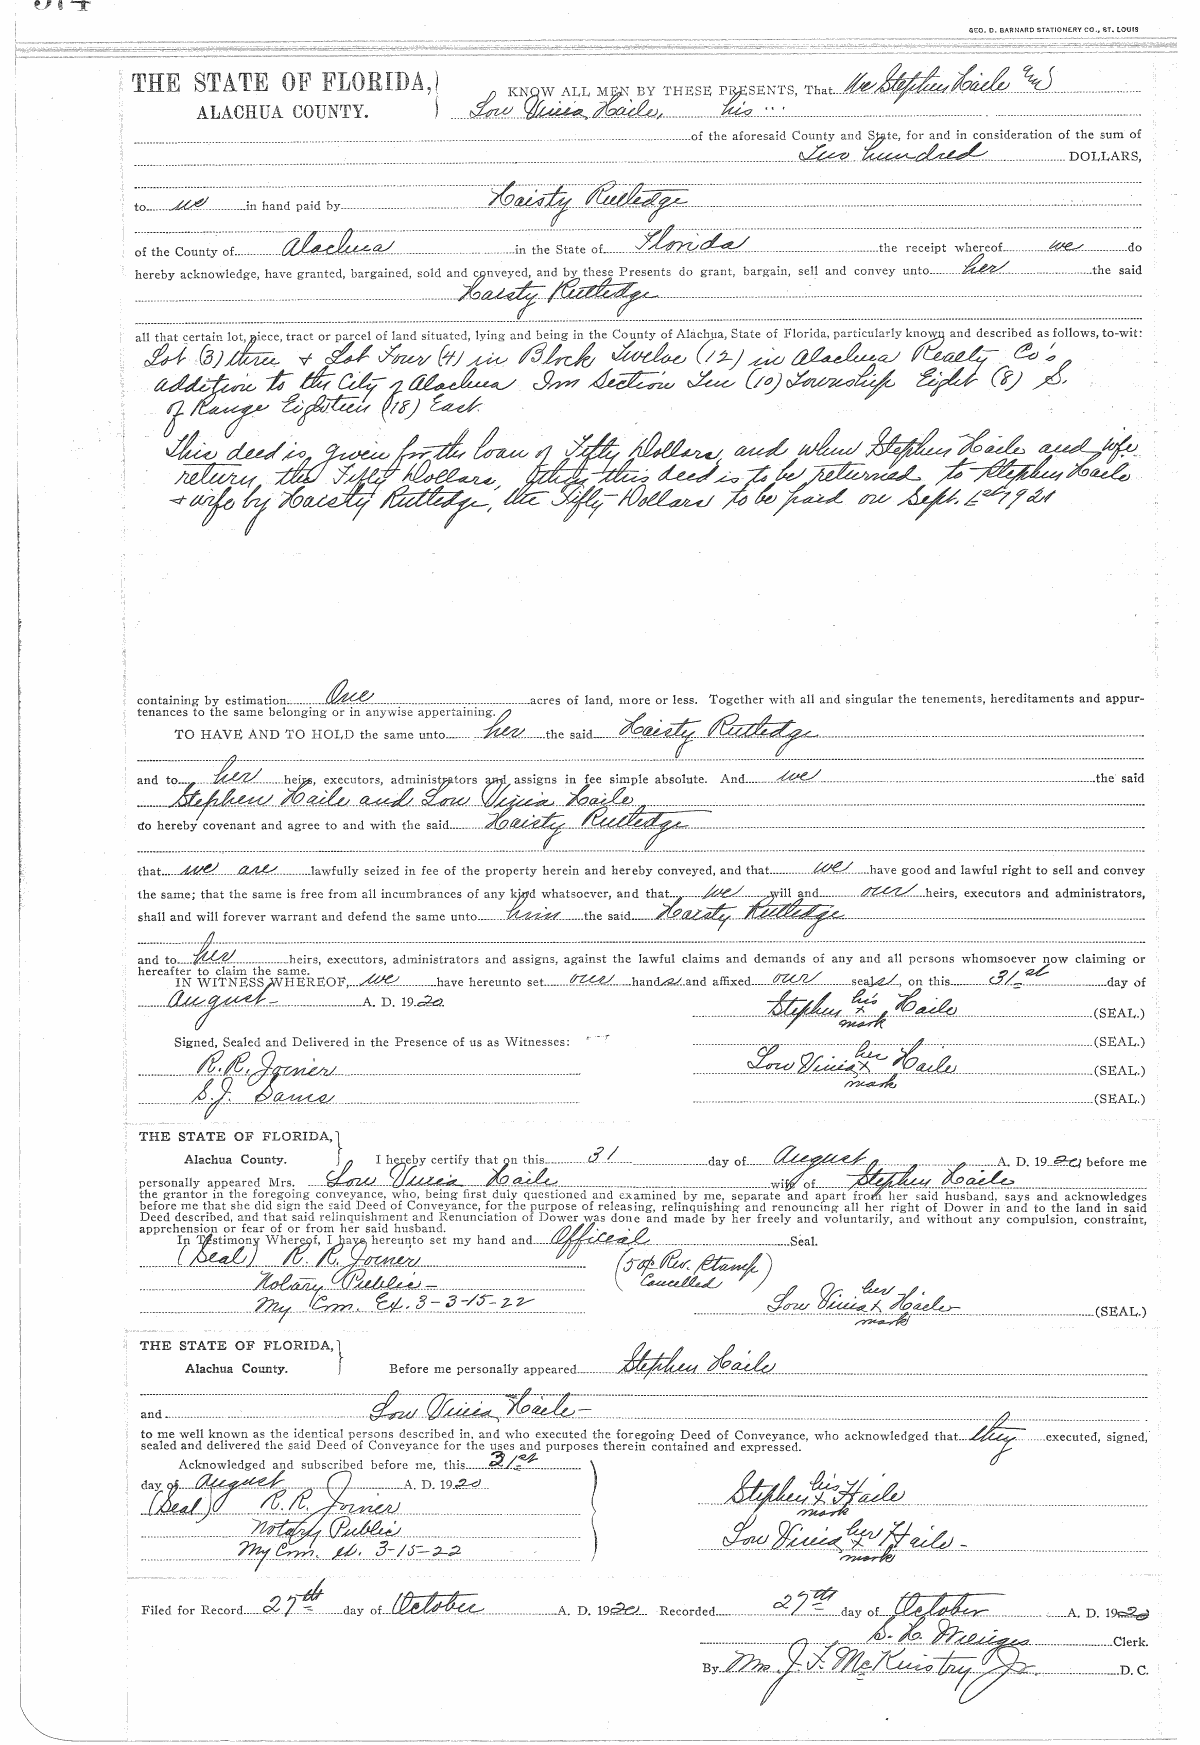 GEO. D. BARNARD STATIONERY CO., ST. LOUIS
THE STATE OF FLORIDA,
ALACHUA COUNTY.
KNOW ALL MEN BY THESE PRESENTS, That We Stephen Haile and
Lou Vinia Haile, his
of the aforesaid County and State, for and in consideration of the sum of
Two hundred DOLLARS,
to we in hand paid by Haisty Rutledge
of the County of Alachua in the State of Florida the receipt whereof we do
hereby acknowledge, have granted, bargained, sold and conveyed, and by these Presents do grant, bargain, sell and convey unto her the said
Haisty Rutledge
all that certain lot, piece, tract or parcel of land situated, lying and being in the County of Alachua, State of Florida, particularly known and described as follows, to-wit:
Lot (3) three & Lot Four (4) in Block Twelve (12) in Alachua Realty Co's
addition to the City of Alachua Im Section Ten (10) Township Eight (8) S.
of Range Eighteen (18) East.
This deed is given for the loan of Fifty Dollars, and when Stephen Haile and wife
return the Fifty Dollars, this deed is to be returned to Stephen Haile
& wife by Haisty Rutledge, the Fifty Dollars to be paid on Sept. 1st 1921
containing by estimation One acres of land, more or less. Together with all and singular the tenements, hereditaments and appur-
tenances to the same belonging or in anywise appertaining.
TO HAVE AND TO HOLD the same unto her the said Haisty Rutledge
and to her heirs, executors, administrators and assigns in fee simple absolute. And we the said
Stephen Haile and Lou Vinia Haile
do hereby covenant and agree to and with the said Haisty Rutledge
that we are lawfully seized in fee of the property herein and hereby conveyed, and that we have good and lawful right to sell and convey
the same; that the same is free from all incumbrances of any kind whatsoever, and that we will and our heirs, executors and administrators,
shall and will forever warrant and defend the same unto him the said Haisty Rutledge
and to her heirs, executors, administrators and assigns, against the lawful claims and demands of any and all persons whomsoever now claiming or
hereafter to claim the same.
IN WITNESS WHEREOF, we have hereunto set our hands and affixed our seals, on this 31st day of
August A. D. 1920
Stephen his x mark Haile (SEAL.)
Signed, Sealed and Delivered in the Presence of us as Witnesses: (SEAL.)
R. R. Joiner Lou Vinia her x mark Haile (SEAL.)
S. J. (SEAL.)
THE STATE OF FLORIDA,
Alachua County. I hereby certify that on this 31 day of August A. D. 1920 before me
personally appeared Mrs. Lou Vinia Haile wife of Stephen Haile
the grantor in the foregoing conveyance, who, being first duly questioned and examined by me, separate and apart from her said husband, says and acknowledges
before me that she did sign the said Deed of Conveyance, for the purpose of releasing, relinquishing and renouncing all her right of Dower in and to the land in said
Deed described, and that said relinquishment and Renunciation of Dower was done and made by her freely and voluntarily, and without any compulsion, constraint,
apprehension or fear of or from her said husband.
In Testimony Whereof, I have hereunto set my hand and Official Seal.
(Seal) R. R. Joiner (50¢ Rev. Stamp
Notary Public – Cancelled)
My Com. Ex. 3-3-15-22 Lou Vinia her x mark Haile (SEAL.)
THE STATE OF FLORIDA,
Alachua County. Before me personally appeared Stephen Haile
and Lou Vinia Haile –
to me well known as the identical persons described in, and who executed the foregoing Deed of Conveyance, who acknowledged that they executed, signed,
sealed and delivered the said Deed of Conveyance for the uses and purposes therein contained and expressed.
Acknowledged and subscribed before me, this 31st
day of August A. D. 1920 Stephen his x mark Haile
(Seal) R. R. Joiner
Notary Public Lou Vinia her x mark Haile –
My Com. ex. 3-15-22
Filed for Record 27th day of October A. D. 1920 Recorded 27th day of October A. D. 1920
S. H. Wienges Clerk.
By Mrs. J. F. McKinstry Jr. D. C.